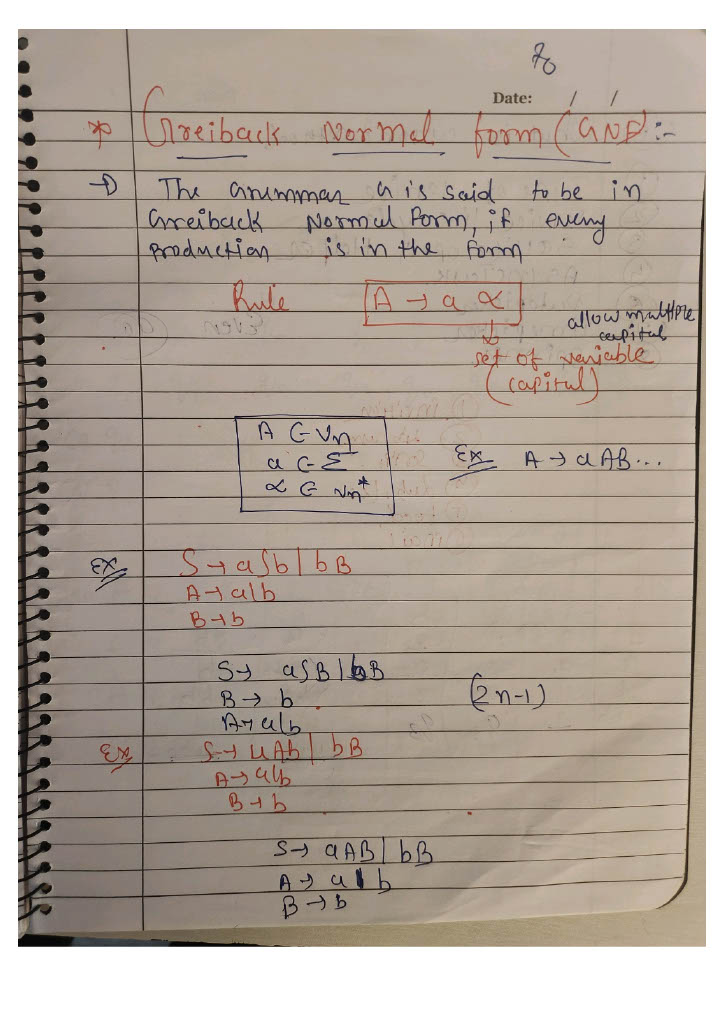 70
Date: / /
* Greiback Normal form (GNF) :-
→ The Grammar G is said to be in
Greiback Normal Form, if every
production is in the form
Rule A → a α
allow multiple
capital
set of variable
(capital)
A ∈ Vn
a ∈ Σ
α ∈ Vn*
Ex A → aAB...
Ex S → aSb | bB
A → a|b
B → b
S → aSB | bB
B → b (2n-1)
A → a|b
Ex S → aAb | bB
A → a|b
B → b
S → aAB | bB
A → a | b
B → b